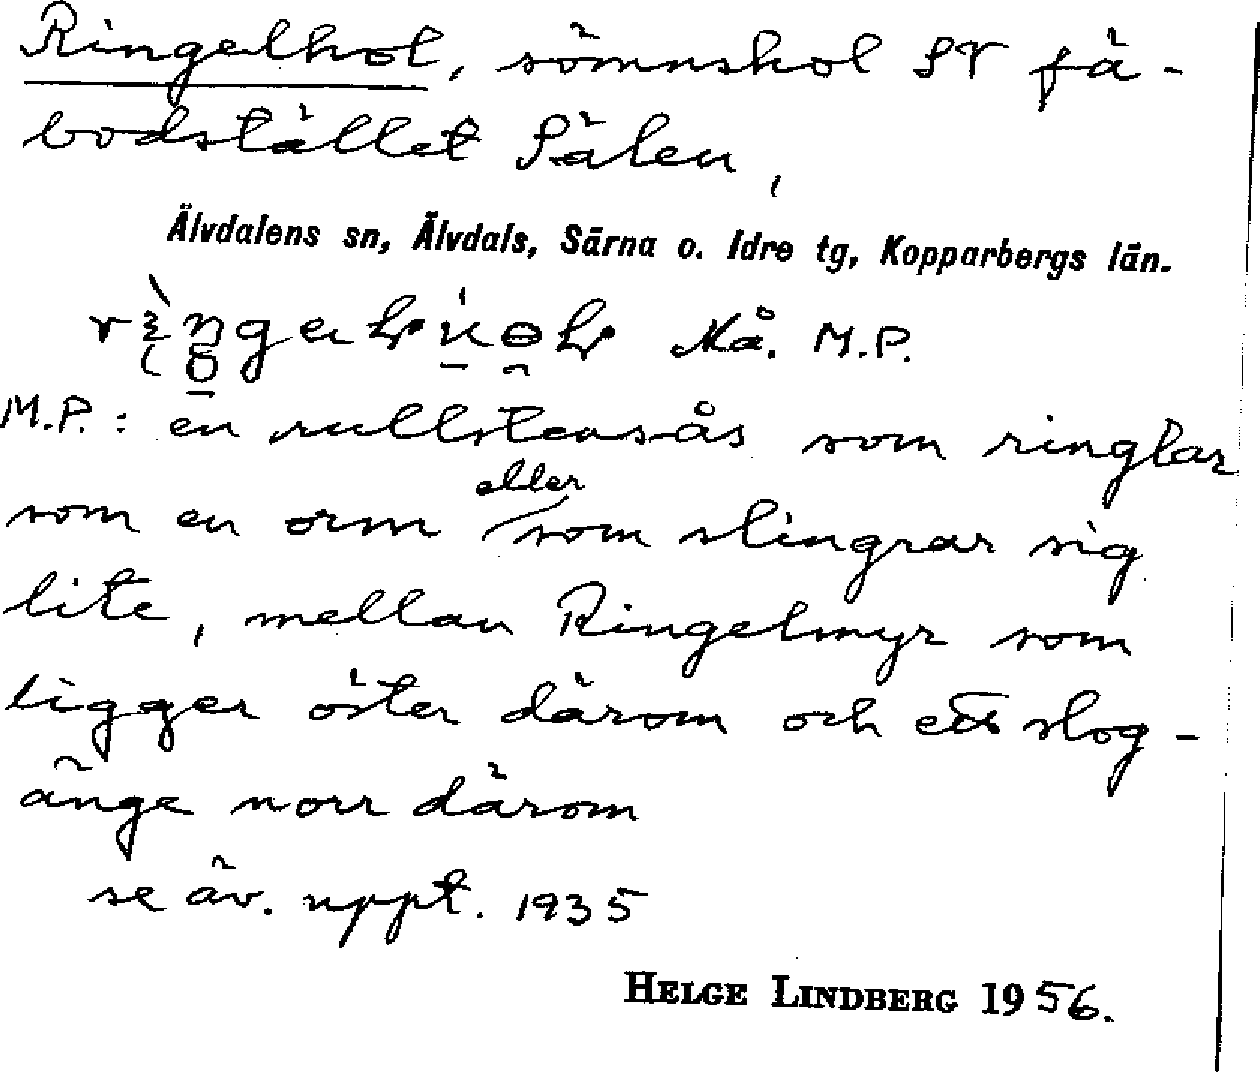 Ringelhol, sömnskol SV fä-
bodstället Sälen,
Älvdalens sn, Älvdals, Särna o. Idre tg, Kopparbergs län.
Må. M.P.
M.P.: en rullstensås som ringlar
som en orm eller som slingrar sig
lite, mellan Ringelmyr som
ligger öster därom och ett slog-
änge norr därom
se äv. uppt. 1935
HELGE LINDBERG 1956.